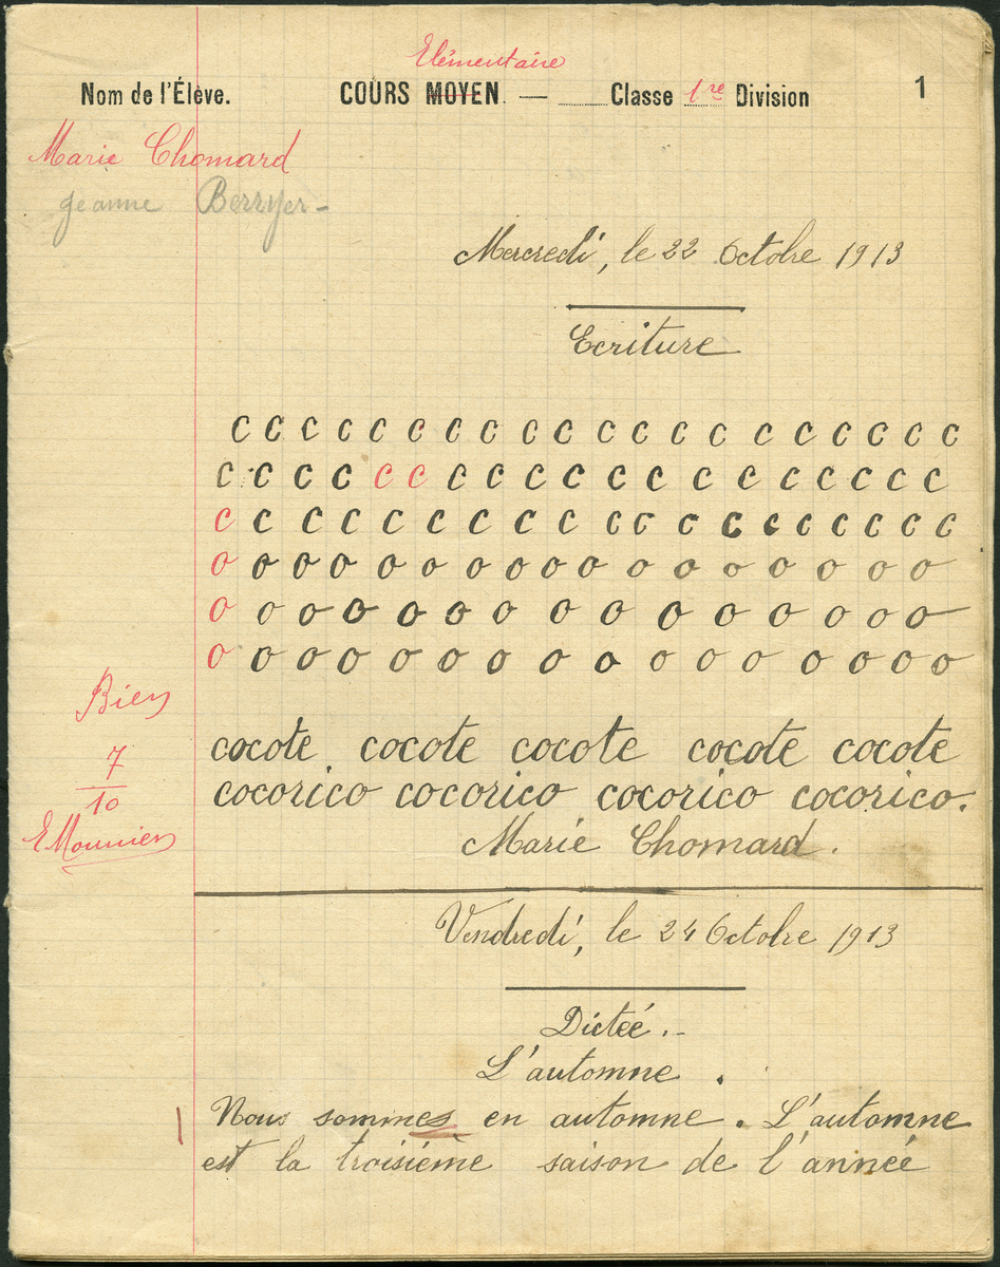 Elémentaire
Nom de l'Élève. COURS MOYEN. — Classe 1re Division 1
Marie Chomard
Jeanne Berryer -
Mercredi, le 22 Octobre 1913
Ecriture
c c c c c c c c c c c c c c c c c c c c
c c c c c c c c c c c c c c c c c c c
c c c c c c c c c c c c c c c c c c
o o o o o o o o o o o o o o o o o
o o o o o o o o o o o o o o o
o o o o o o o o o o o o o o o o
Bien
cocote cocote cocote cocote cocote
7
10
cocorico cocorico cocorico cocorico.
E Mounier
Marie Chomard.
Vendredi, le 24 Octobre 1913
Dicteé.-
L'automne.
Nous sommes en automne. L'automne
est la troisiéme saison de l'anneé